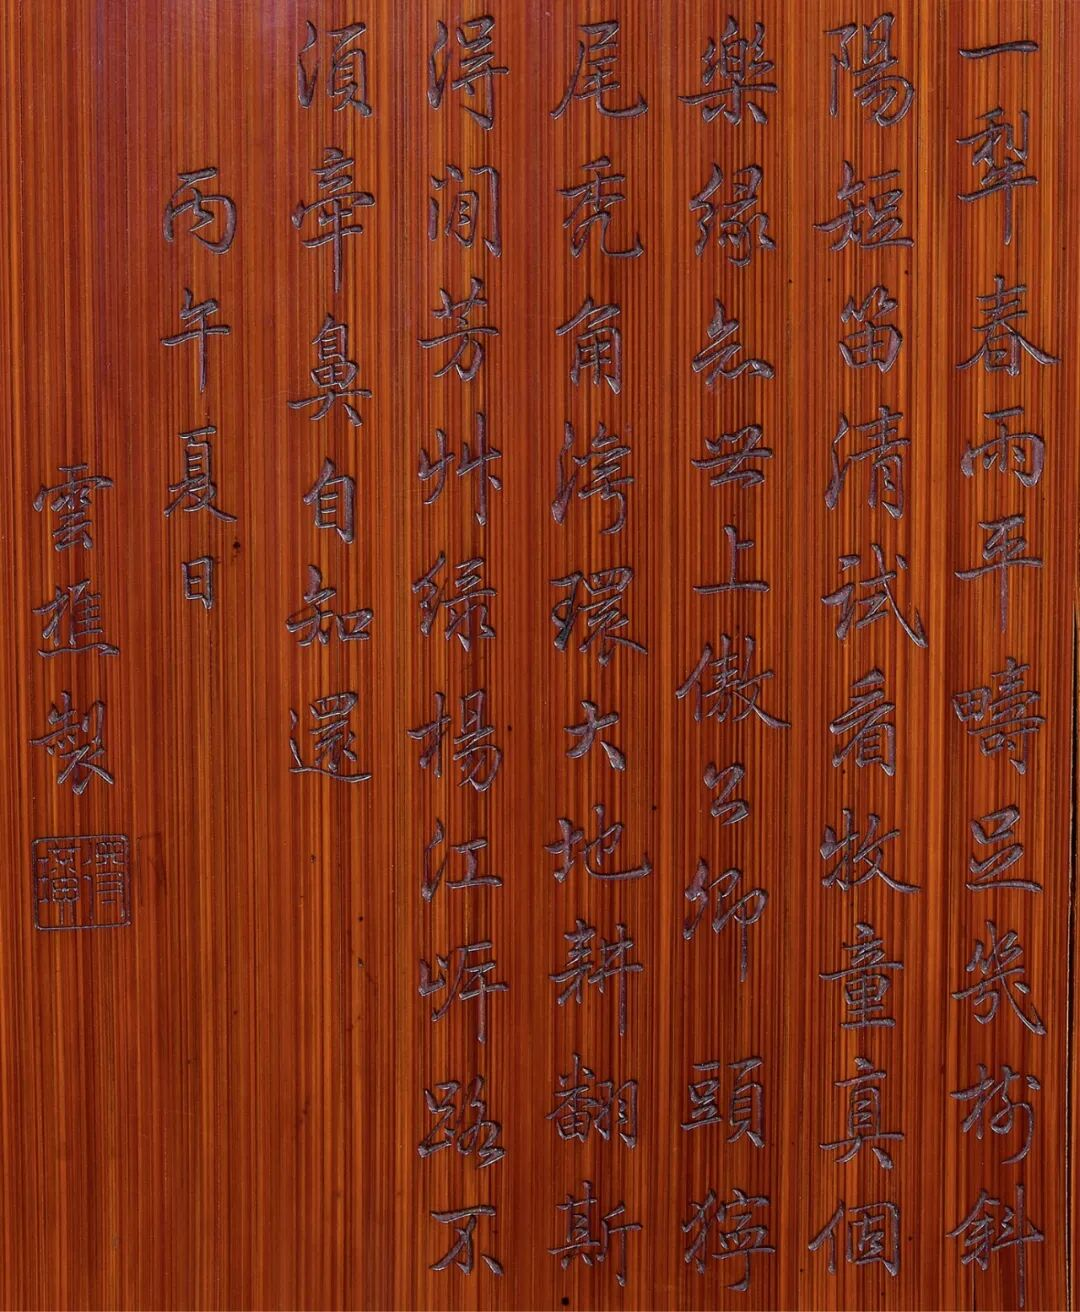 一犁春雨平疇足幾樹斜
陽短笛清試看牧童真個
樂緣知世上傲公卿頭獰
尾禿角灣環大地耕翻斯
得閒芳艸綠楊江岸路不
須牽鼻自知還
丙午夏日
雲樵製